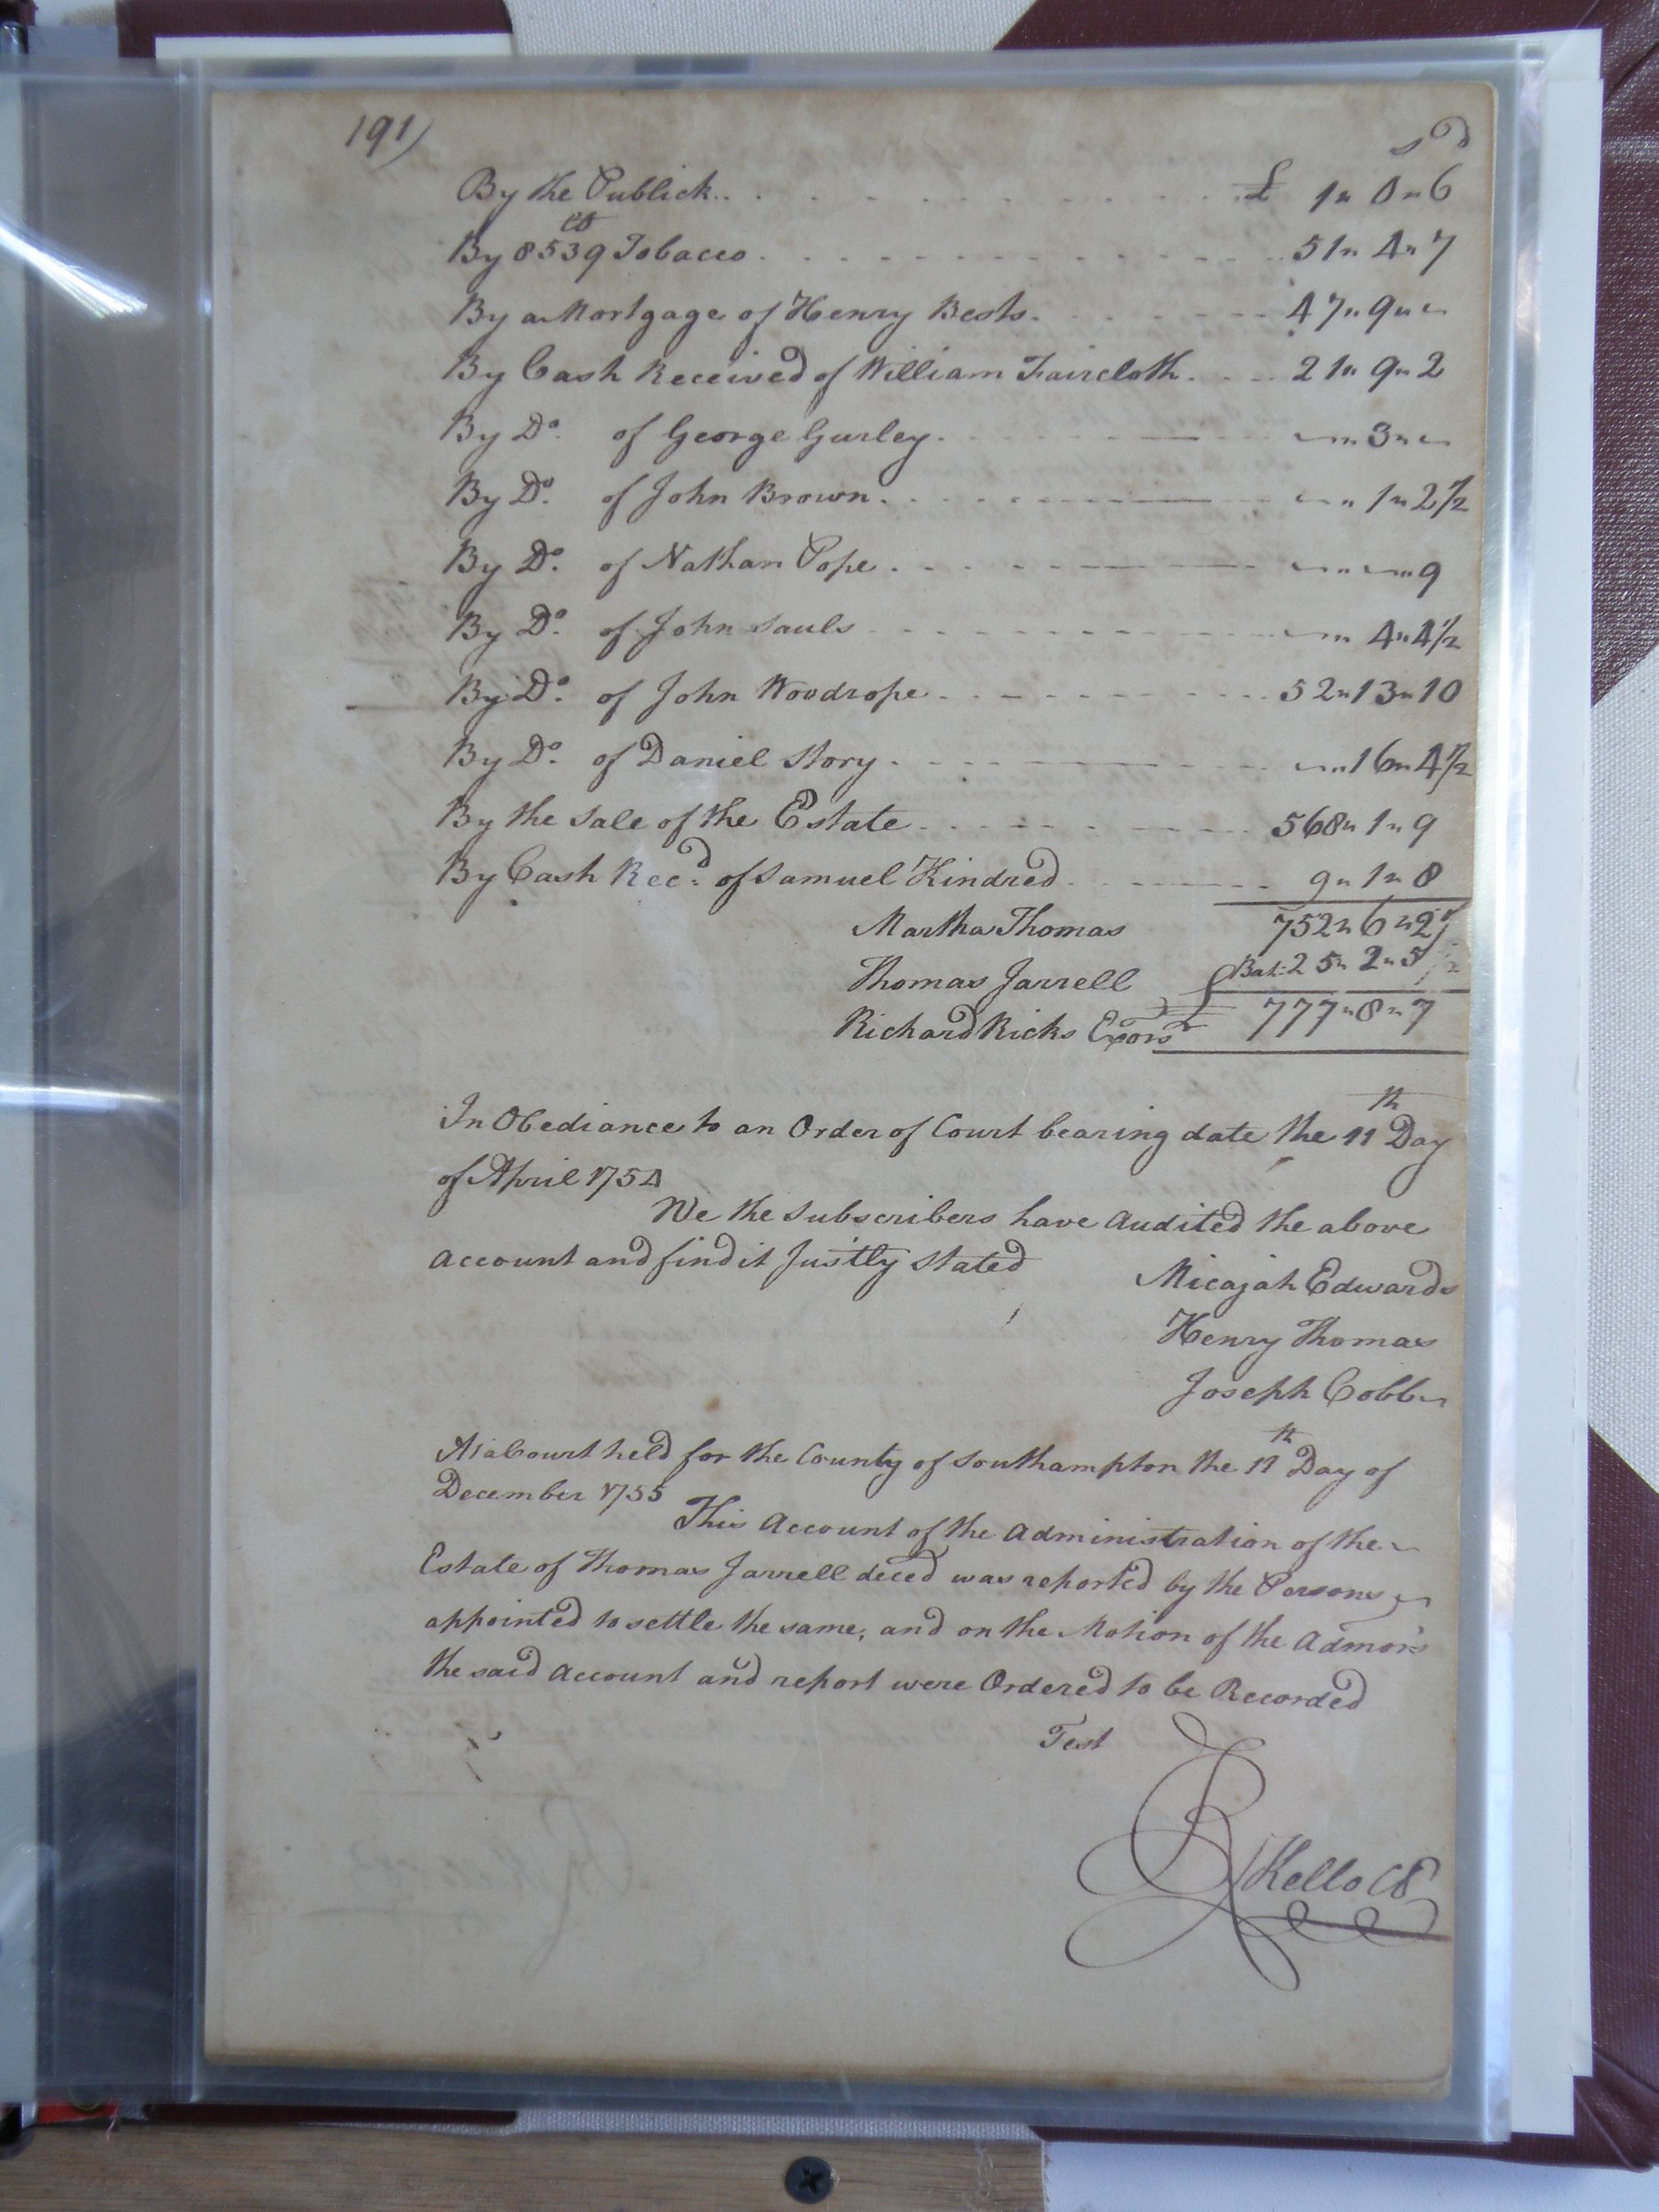 191)
s d
By the Publick £ 1 " 0 " 6
By 8539 lb Tobacco 51 " 4 " 7
By a Mortgage of Henry Bests 47 " 9 " —
By Cash Received of William Faircloth 21 " 9 " 2
By Do. of George Gurley — " 3 " —
By Do. of John Brown — " 1 " 2 1/2
By Do. of Nathan Pope — " — " 9
By Do. of John Sauls — " 4 " 4 1/2
By Do. of John Woodrope 52 " 13 " 10
By Do. of Daniel Story — " 16 " 4 1/2
By the Sale of the Estate 568 " 1 " 9
By Cash Recd. of Samuel Kindred 9 " 1 " 8
Martha Thomas 752 " 6 " 2
Thomas Jarrell Bal: 25 " 2 " 5
Richard Ricks Exors £ 777 " 8 " 7
In Obediance to an Order of Court bearing date the 11th Day
of April 1754
We the Subscribers have Audited the above
Account and find it Justly Stated
Micajah Edwards
Henry Thomas
Joseph Cobb
At a Court held for the County of Southampton the 11th Day of
December 1755
This Account of the Administration of the
Estate of Thomas Jarrell deced was reported by the Persons
appointed to settle the same, and on the Motion of the Admors
the said Account and report were Ordered to be Recorded
Test
R Kello CS